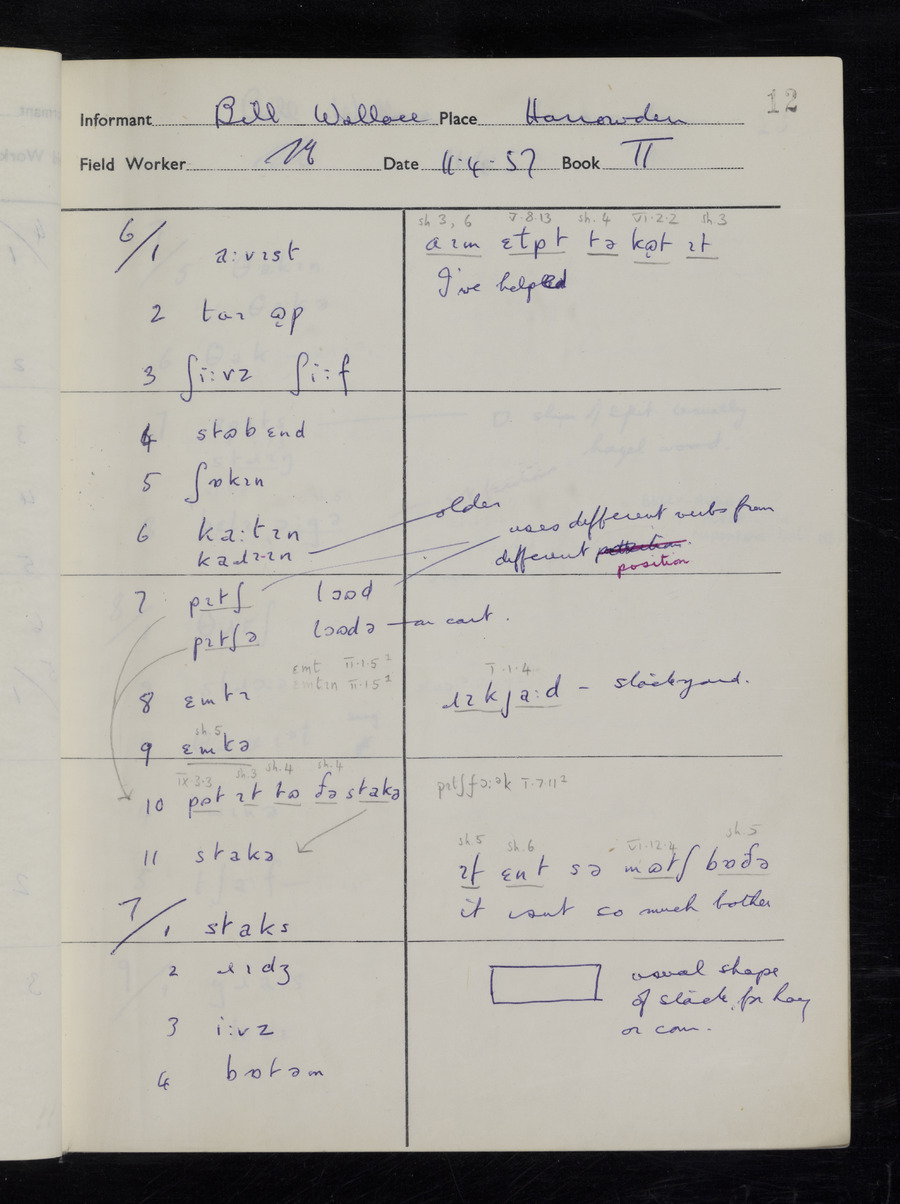 12
Informant Bill Wallace Place Harrowden
Field Worker Date 11·4·57 Book II
sh 3, 6 V·8·13 sh. 4 VI·2·2 sh 3
6/1 a:vɪst
aɪm ɛtpt tə kɒt ɪt
I've helped
2
3 ʃi:vz ʃi:f
4 stɒb ɛnd
5 ʃɒkɪn
6 ka:tɪn
older
uses different verbs from
different
position
7 pɪtʃ lɔəd
pɪtʃə lɔədə on cart.
ɛmt II·1·5²
ɛmtɪn II·1·5²
I·1·4
8 ɛmtɪ
ɹɪkja:d – stackyard.
sh.5
9 ɛmtə
IX·3·3 sh.3 sh.4 sh.4
I·7·11²
10 pɒt ɪt tə ðə stakə
sh.5 sh.6 VI·12·4 sh.5
11 stakə
ɪt ɛnt sə mɒtʃ bɒðə
it isnt so much bother
7/1 staks
2 ɹɪdʒ
usual shape
of stack, for hay
or corn.
3 i:vz
4 bɒtəm